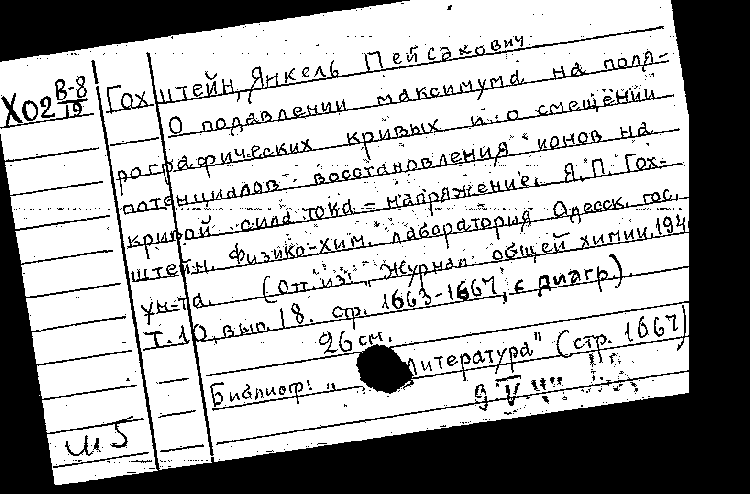 Х02 В-8/19
Гохштейн, Янкель Пейсахович
О подавлении максимума на поля-
рографических кривых и о смещении
потенциалов восстановления ионов на
кривой сила тока = напряжение. Я. П. Гох=
штейн. Физико-хим. лаборатория Одесск. гос.
ун-та. (Отт. из: "Журнал общей химии, 194
т. 10, вып. 18. стр. 1663-1667, с диагр).
26 см.
Библиогр: " Литература" (стр. 1667)
9 V